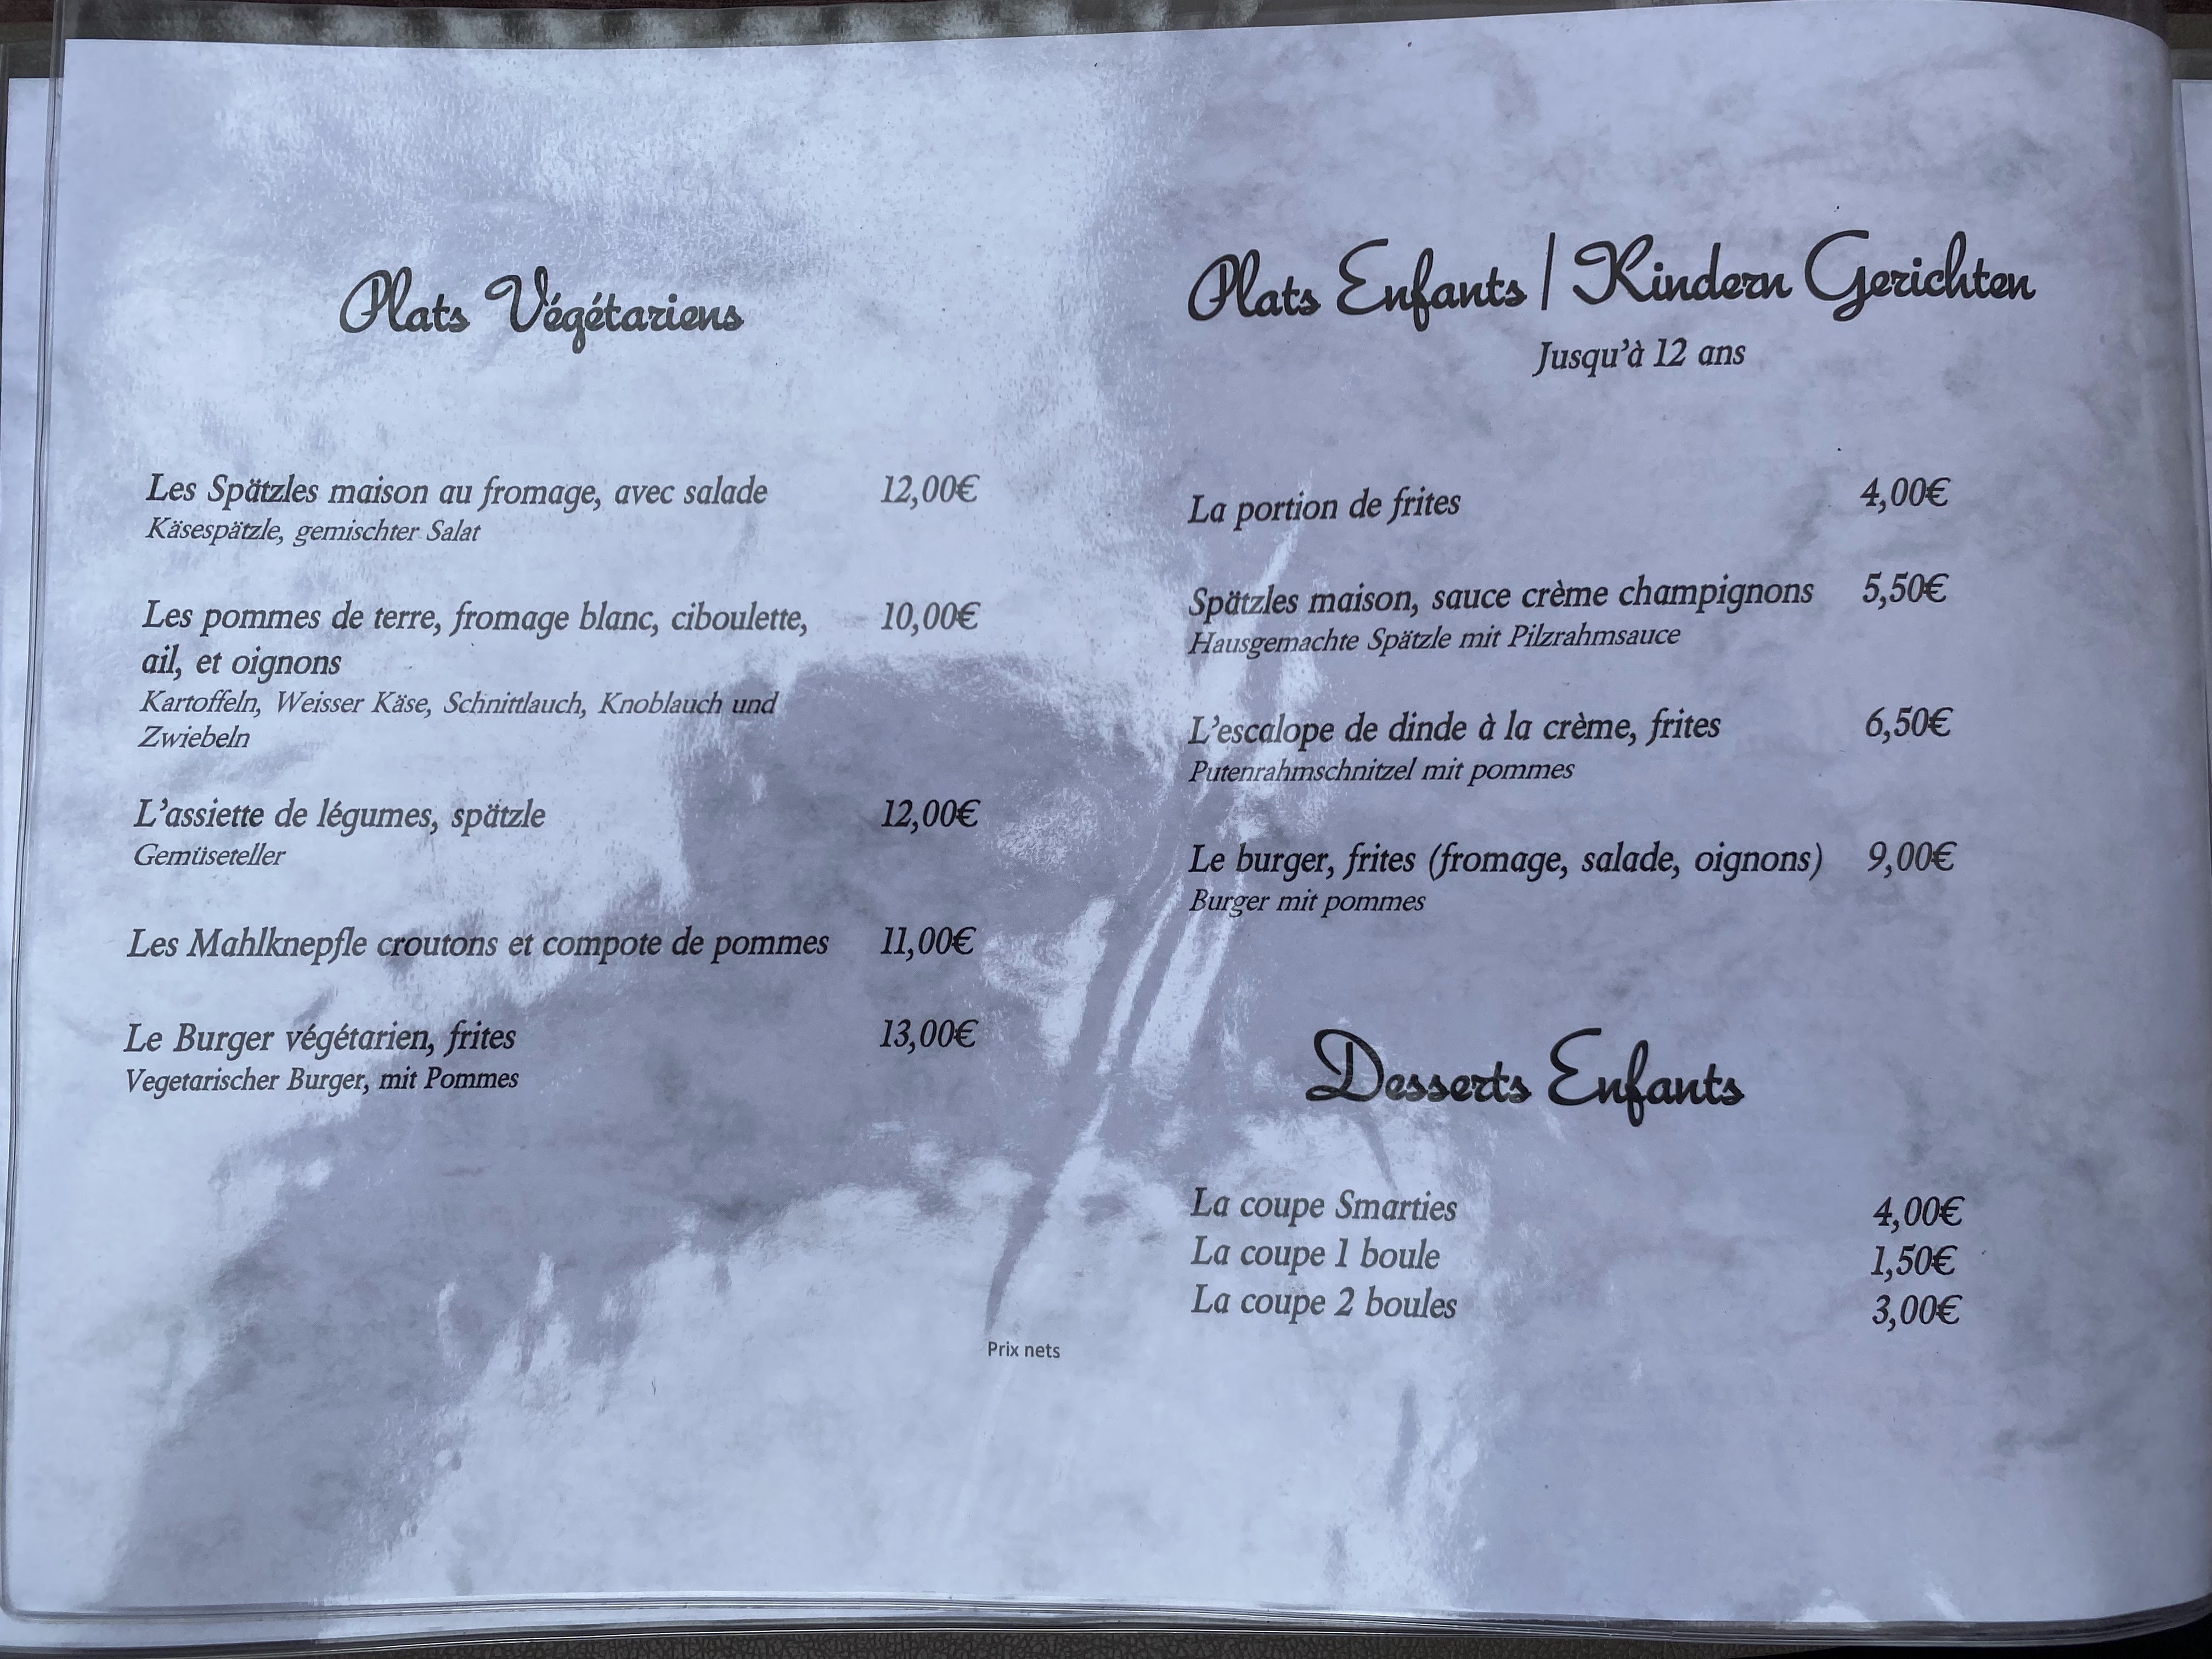 Plats Végétariens
Les Spätzles maison au fromage, avec salade 12,00€
Käsespätzle, gemischter Salat
Les pommes de terre, fromage blanc, ciboulette, 10,00€
ail, et oignons
Kartoffeln, Weisser Käse, Schnittlauch, Knoblauch und
Zwiebeln
L'assiette de légumes, spätzle 12,00€
Gemüseteller
Les Mahlknepfle croutons et compote de pommes 11,00€
Le Burger végétarien, frites 13,00€
Vegetarischer Burger, mit Pommes
Plats Enfants | Kindern Gerichten
Jusqu'à 12 ans
La portion de frites 4,00€
Spätzles maison, sauce crème champignons 5,50€
Hausgemachte Spätzle mit Pilzrahmsauce
L'escalope de dinde à la crème, frites 6,50€
Putenrahmschnitzel mit pommes
Le burger, frites (fromage, salade, oignons) 9,00€
Burger mit pommes
Desserts Enfants
La coupe Smarties 4,00€
La coupe 1 boule 1,50€
La coupe 2 boules 3,00€
Prix nets